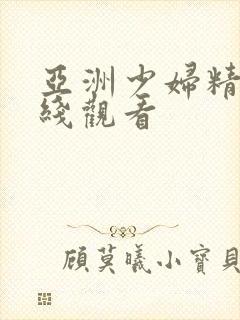 亞洲少婦精
綫觀看
顧莫曦小寶貝